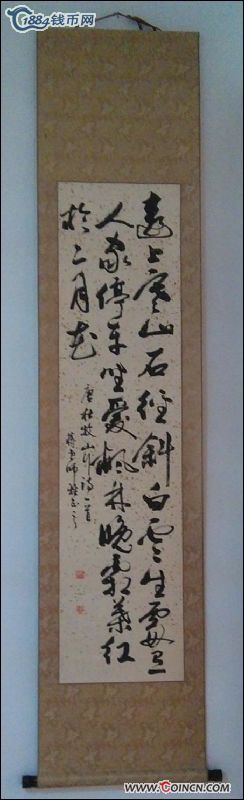 1884钱币网
遠上寒山石徑斜白雲生處有
人家停車坐愛楓林晚霜葉紅
於二月花
唐杜牧山行詩一首
WWW.COINCN.COM